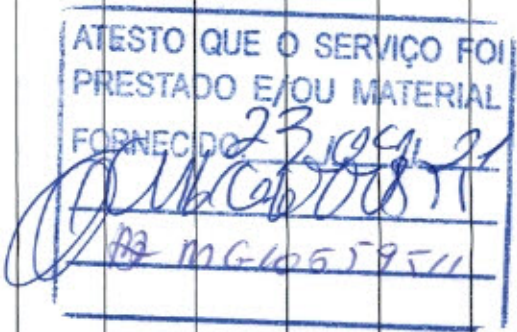 ATESTO QUE O SERVIÇO FOI
PRESTADO E/OU MATERIAL
FORNECIDO 23/09/21
MG10559511